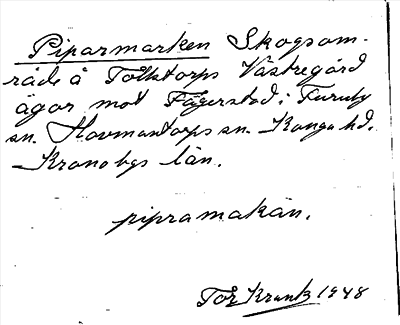 Piparmarken Skogsom-
råde å Tolkstorps Västregård
ägor mot Fägerstad i Furuby
sn. Hovmantorps sn. Konga hd.
Kronobgs län.
pipramakan.
Tor Krantz 1948